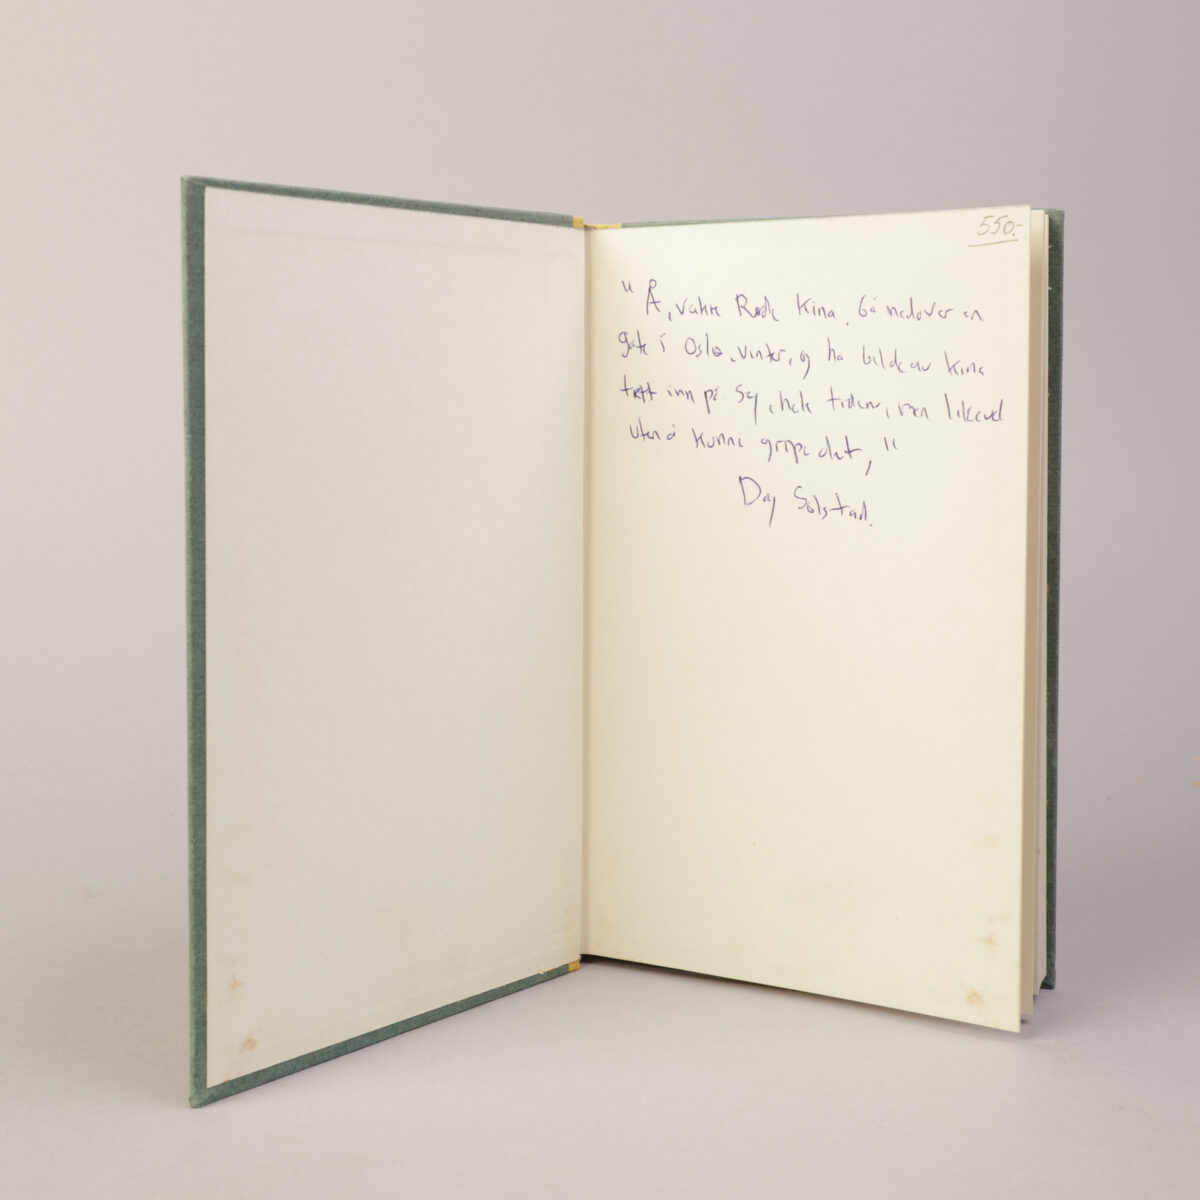 550,-
"Å, vakre Røde Kina. Gå nedover en
gate i Oslo, vinter, og ha bilde av Kina
tett inn på seg, hele tiden, men likevel
uten å kunne gripe det,"
Dag Solstad.